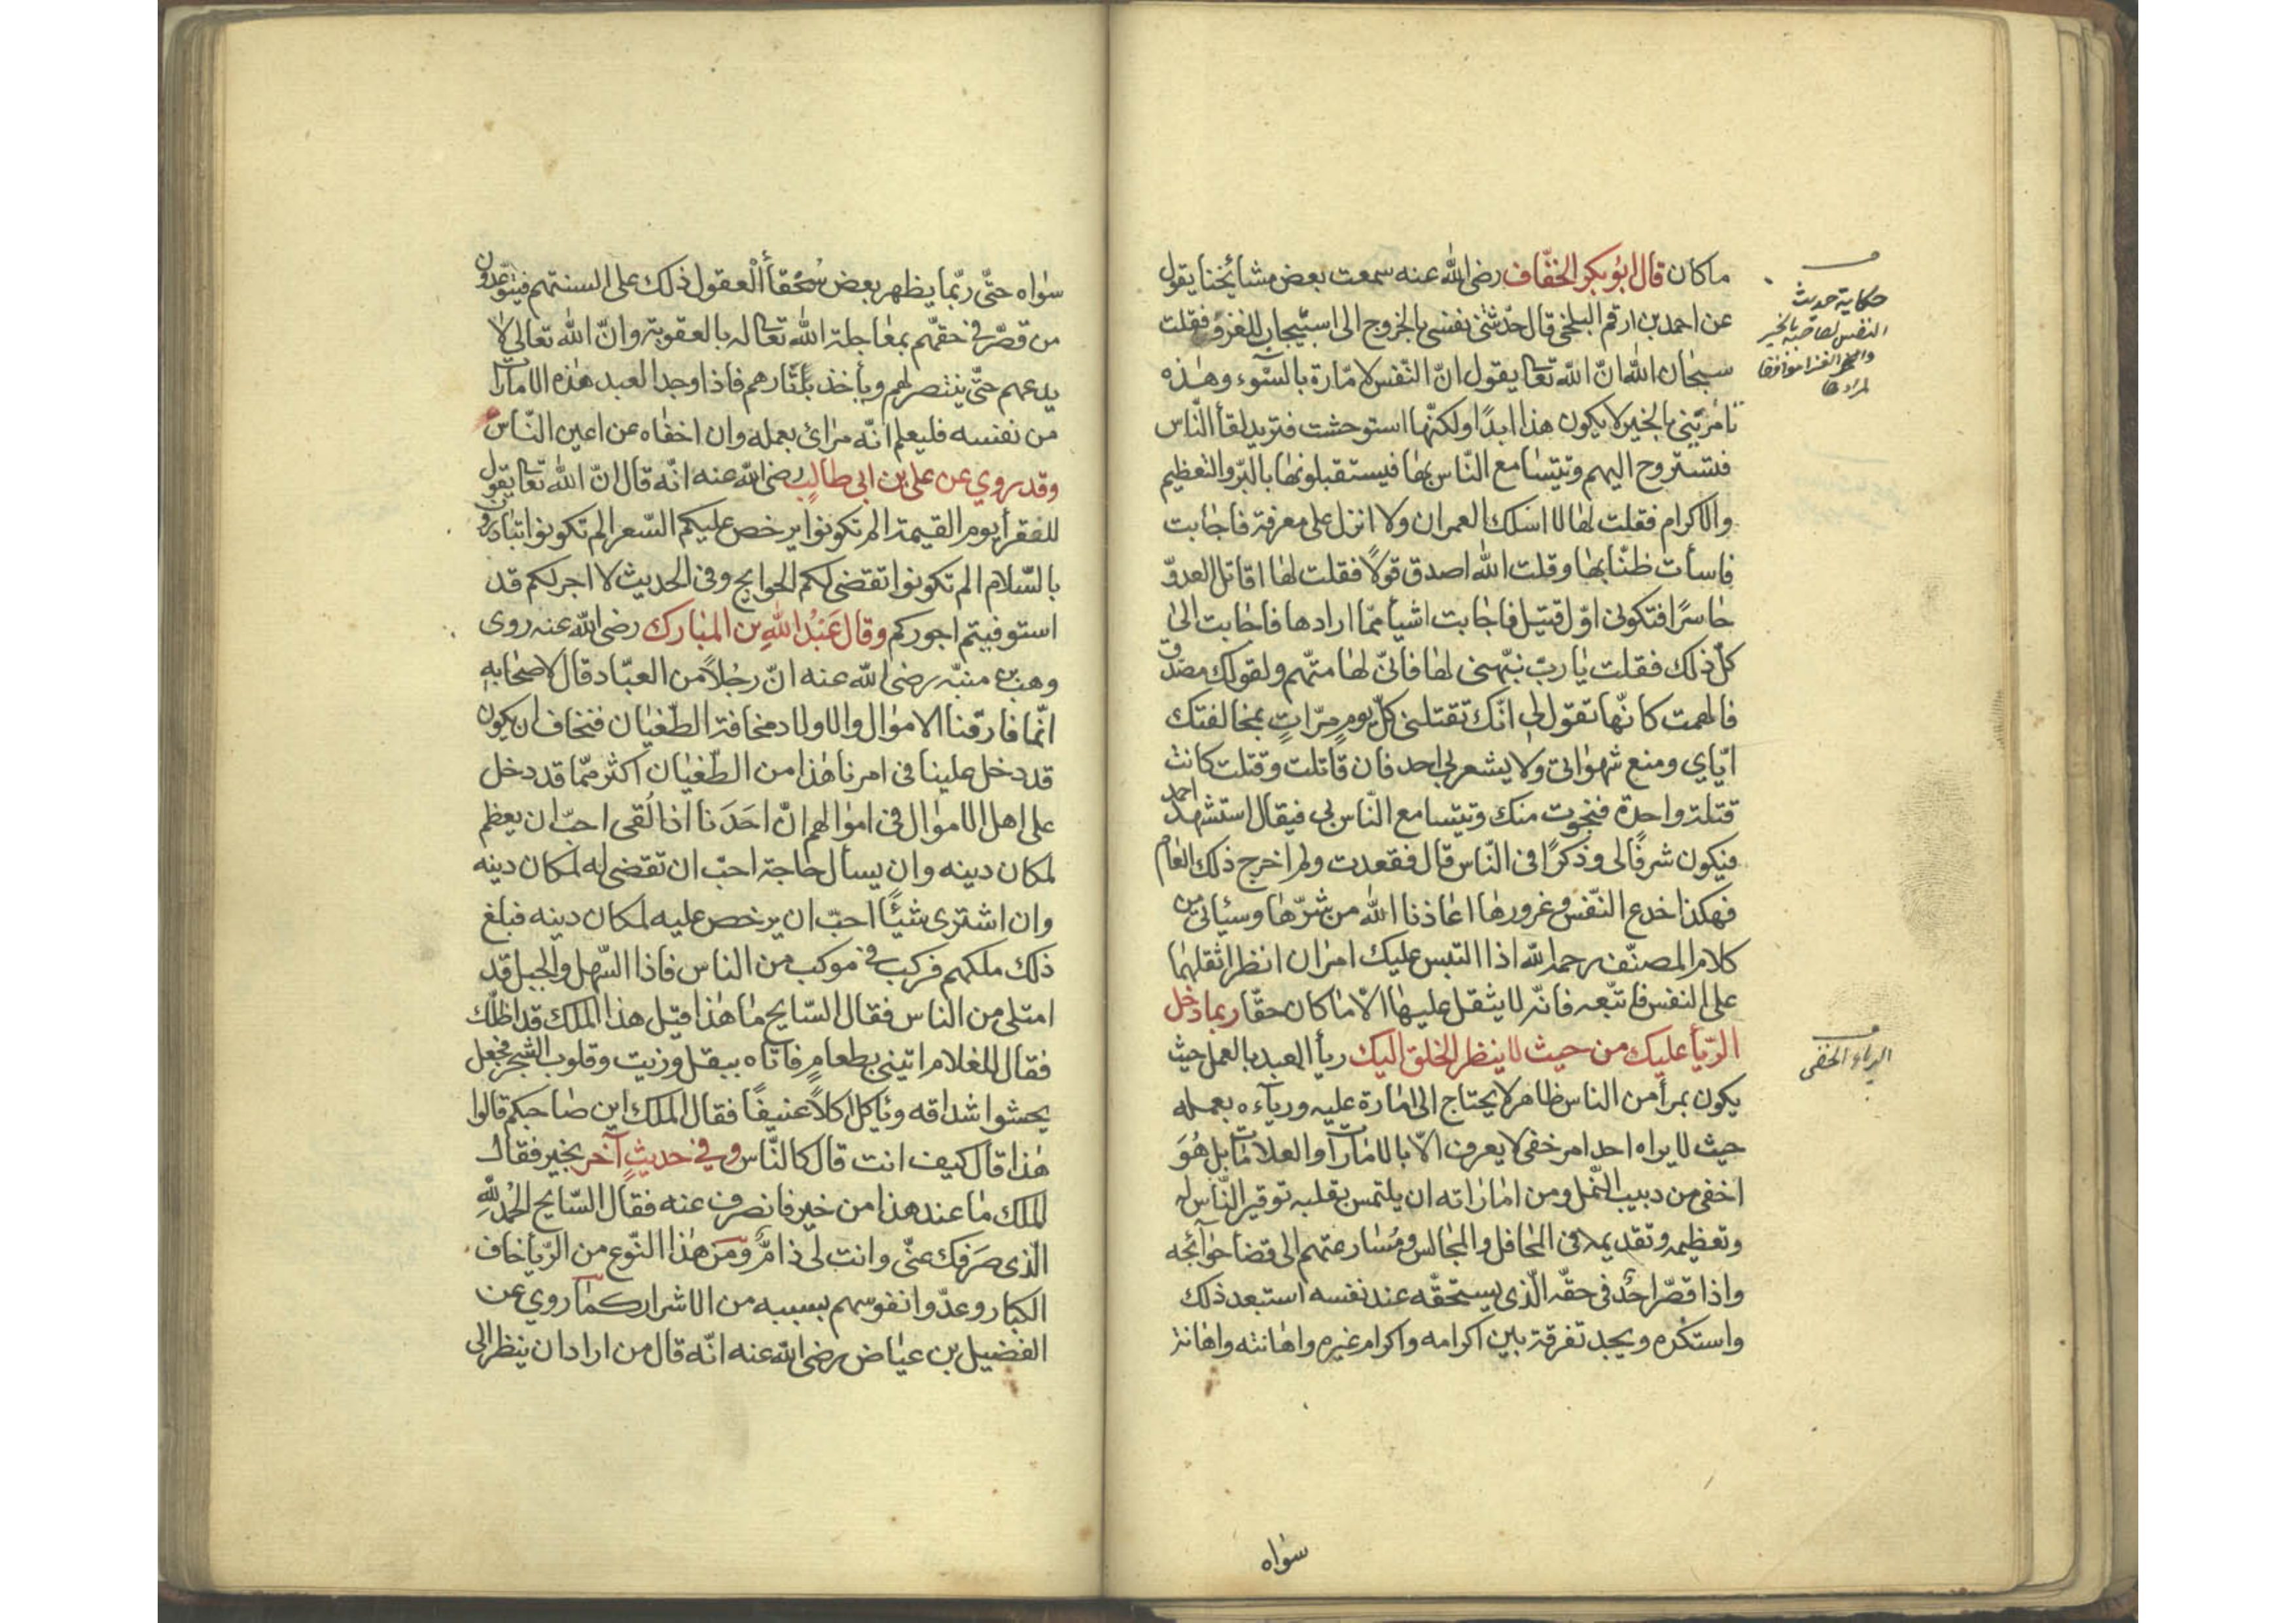 ما كان قال ابو بكر الخفّاف رضى الله عنه سمعت بعض مشائخنا يقول
عن احمد بن ارقم البلخى قال حدّثتنى نفسى بالخروج الى اسبيجاب للغزو فقلت
سبحان الله انّ الله تعالى يقول انّ النّفس لامّارة بالسّوء وهذه
تامرنى بالخير لا يكون هذا ابدًا ولكنّها استوحشت فتريد لقأ النّاس
فتستروح اليهم وتيتسامع النّاس بها فيستقبلونها بالبرّ والتعظيم
والاكرام فقلت لها لا اسلك العمران ولا انزل على معرفة فاجابت
فاسأت ظنّا بها وقلت الله اصدق قولًا فقلت لها اقاتل العدوّ
حاسرًا فتكونى اوّل قتيل فاجابت اشيأ ممّا ارادها فاجابت الى
كلّ ذلك فقلت يا ربّ نبّهنى لها فانّى لها متّهم ولقولك مصدّق
فالهمت كانّها تقول لى انّك تقتلنى كلّ يوم مرّات بمخالفتك
ايّاي ومنع شهواتى ولا يشعر بى احد فان قاتلت وقتلت كانت
قتلة واحدة فنجوت منك وتيتسامع النّاس بى فيقال استشهد احمد
فيكون شرفًا لى وذكرًا فى النّاس قال فقعدت ولم اخرج ذلك العام
فهكذا خدع النّفس وغرورها اعاذنا الله من شرّها وسيأتى من
كلام المصنّف رحمه الله اذا التبس عليك امران انظر اثقلهما
على النفس فاتّبعه فانّه لا يثقل عليها الّا ما كان حقّا ربما دخل
الرّيأ عليك من حيث لا ينظر الخلق اليك ريأ العبد بالعمل حيث
يكون بمرأ من الناس ظاهر لا يحتاج الى امارة عليه ورياءه بعمله
حيث لا يراه احد امر خفى لا يعرف الّا بالامارات والعلامات بل هُوَ
اخفى من دبيب النّمل ومن اماراته ان يلتمس بقلبه توقير النّاس له
وتعظيمه وتقديمه فى المحافل والمجالس ومُسارعتهم الى قضأ حوائجه
واذا قصّر احدٌ فى حقّه الّذى يستحقّه عند نفسه استبعد ذلك
واستنكره ويجد تفرقة بين اكرامه واكرام غيره واهانته واهانة
سواه
حكاية حديث
النفس لصاحبه بالخير
الرياء الخفى
سواه حتّى ربّما يظهر بعض سُخقأ العقول ذلك على السنتهم فيتوعّدون
من قصّر فى حقهم بمعاجلة الله تعالى له بالعقوبة وانّ الله تعالى لا
يدعهم حتّى ينتصر لهم ويأخذ بثارهم فاذا وجد العبد هذه الامارات
من نفسه فليعلم انّه مرائ بعمله وان اخفاه عن اعين النّاس
وقد روي عن على بن ابى طالب رضى الله عنه انّه قال انّ الله تعالى يقول
للفقرأ يوم القيمة الم تكونوا يرخص عليكم السّعر الم تكونوا تبادرون
بالسّلام الم تكونوا تقضى لكم الحوايج وفى الحديث لا اجر لكم قد
استوفيتم اجوركم وقال عَبْدُ اللهِ بن المبارك رضى الله عنه روى
وهب بن منبّه رضى الله عنه انّ رجُلًا من العبّاد قال لاصحابه
انّما فارقنا الاموال والاولاد مخافة الطّغيان فنخاف ان يكون
قد دخل علينا فى امرنا هذا من الطّغيان اكثر ممّا قد دخل
على اهل الاموال فى اموالهم انّ احَدَنا اذا لُقى احبّ ان يعظم
لمكان دينه وان يسأل حاجة احبّ ان تقضى له لمكان دينه
وان اشترى شيئًا احبّ ان يرخص عليه لمكان دينه فبلغ
ذلك ملكهم فركب فى موكب من الناس فاذا السّهل والجبل قد
امتلى من الناس فقال السّايح ما هذا قيل هذا الملك قد اظلّك
فقال للغلام ايتنى بطعامٍ فاتاه ببقل وزيت وقلوب الشجر فجعل
يحشوا شداقه وياكل اكلًا عنيفًا فقال الملك اين صاحبكم قالوا
هذا قال كيف انت قال كالنّاس وفى حديثٍ آخر بخير فقال
الملك ما عند هذا من خير فانصرف عنه فقال السّايح الحُمْد للّهِ
الّذى صَرَفك عنّى وانت لى ذامٌّ ومن هذا النّوع من الرّيأ خاف
الكبار وعدّوا نفوسهم بسببه من الاشرار كما روي عن
الفضيل بن عياض رضى الله عنه انّه قال من اراد ان ينظر الى